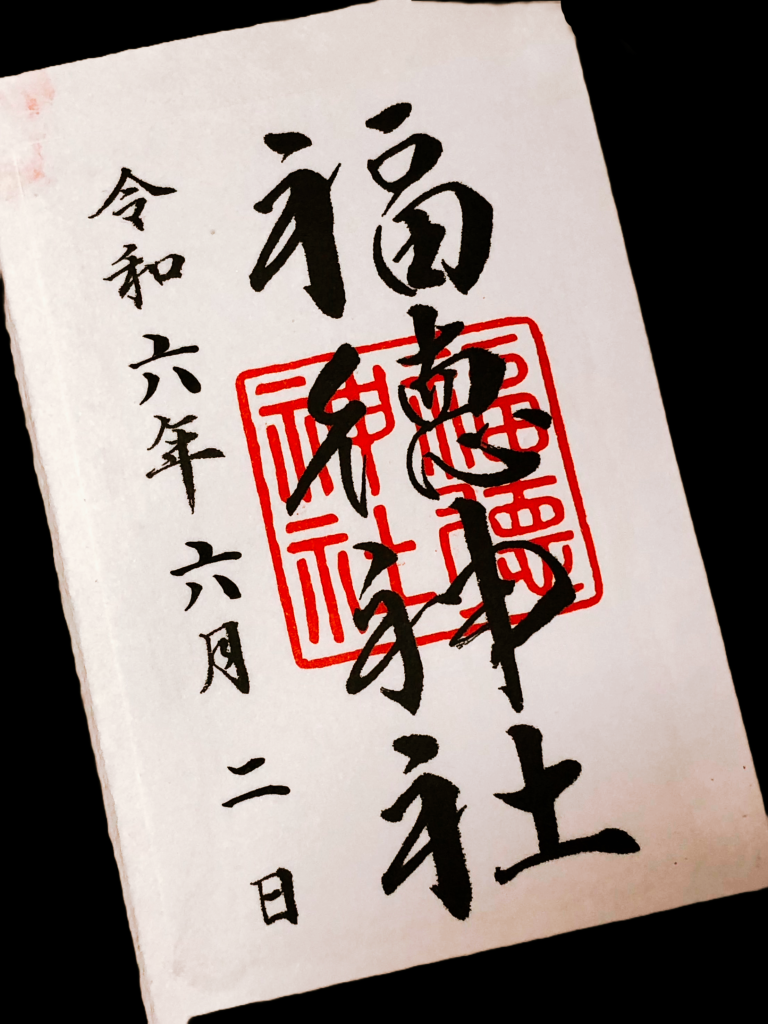 福徳神社
福徳
神社
令和六年六月二日